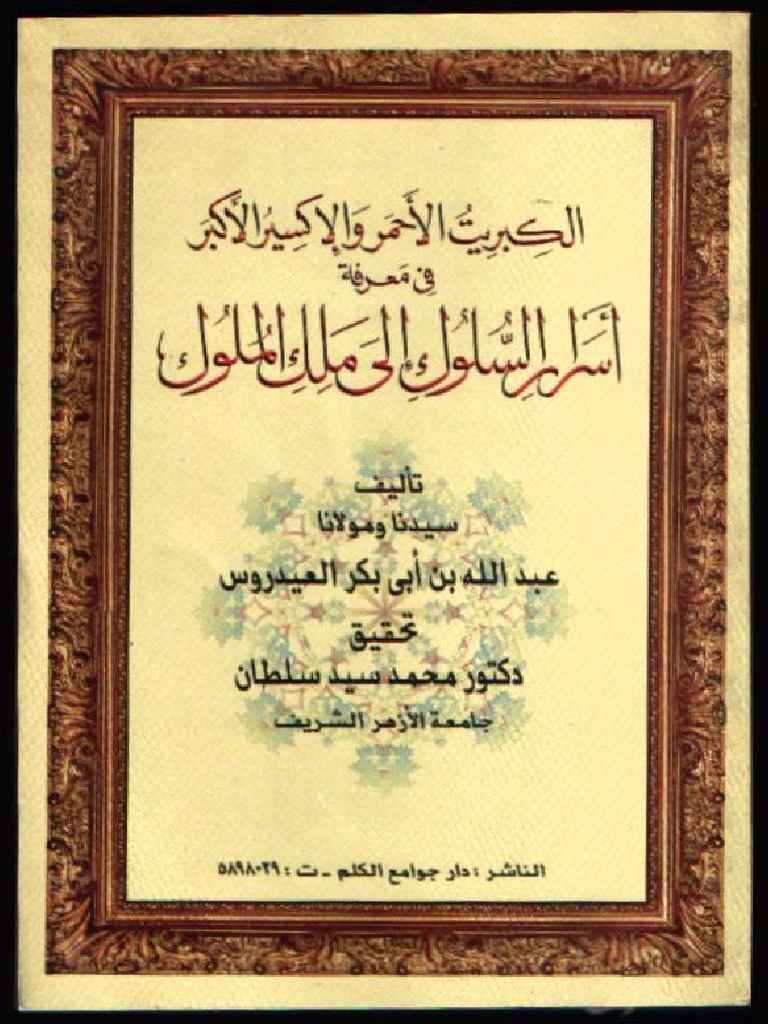 الكِبرِيتُ الأَحمَر وَالإِكسِيرُ الأَكبَر
فِي مَعرِفة
أَسرَارِ السُّلُوكِ إِلَى مَلِكِ المُلُوكِ
تأليف
سيدنا ومولانا
عبد الله بن أبى بكر العيدروس
تحقيق
دكتور محمد سيد سلطان
جامعة الأزهر الشريف
الناشر : دار جوامع الكلم ـ ت : ٥٨٩٨٠٢٩